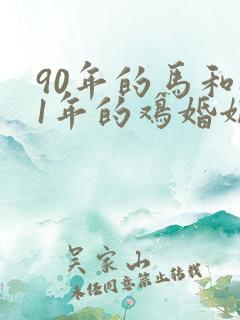 90年的馬和
1年的鷄婚
吴家山
未经同意禁止转载